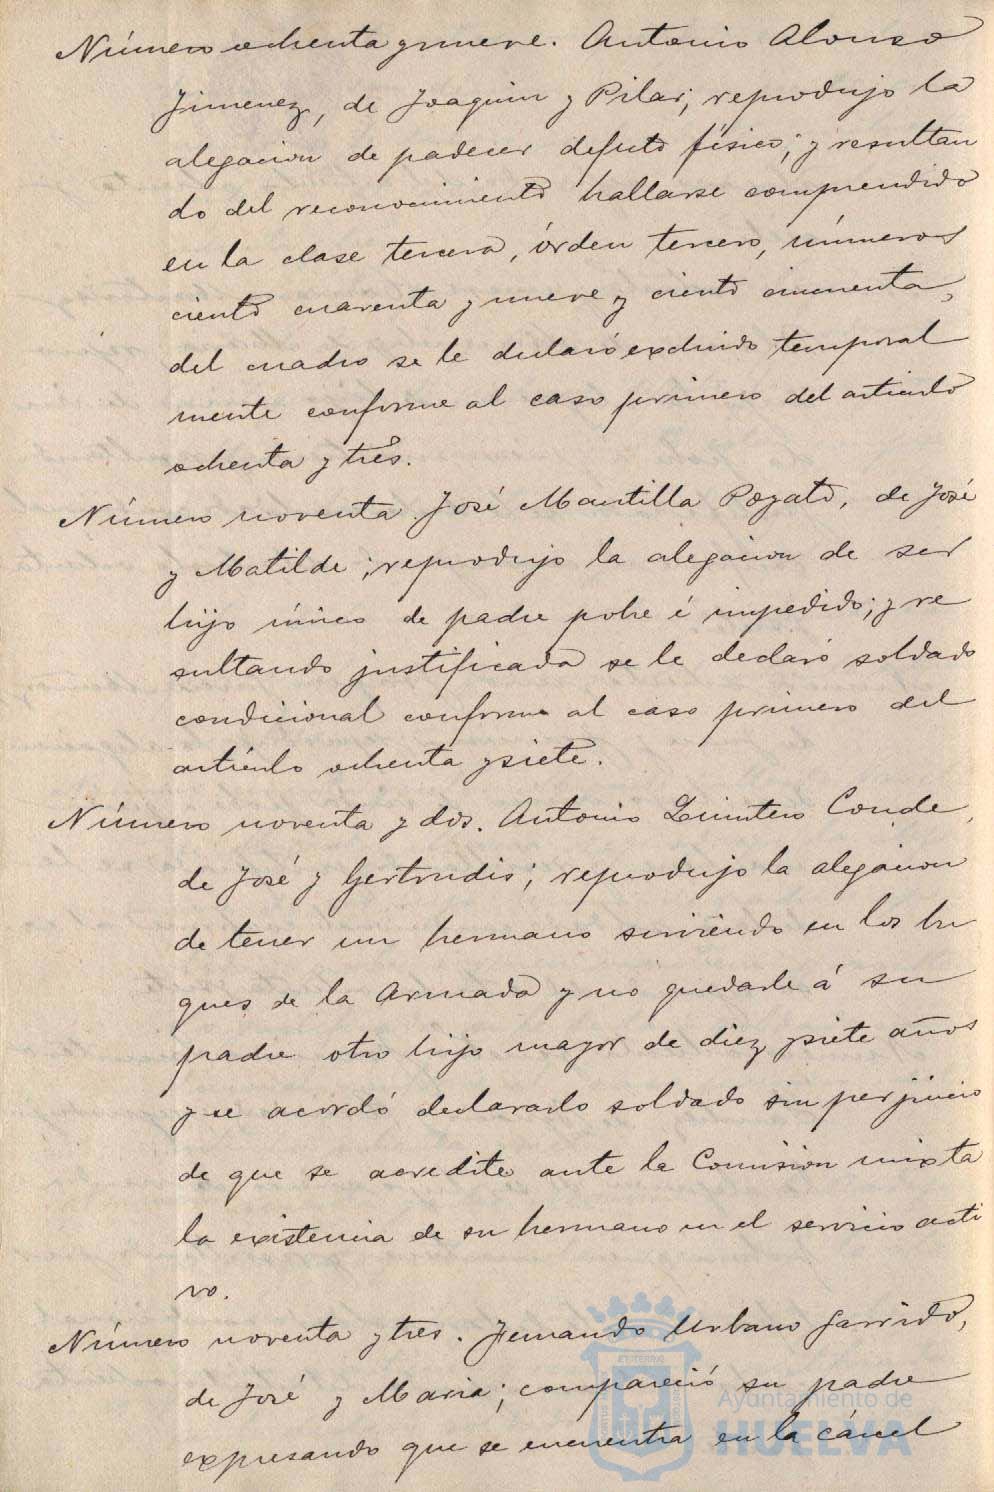 Número ochenta y nueve. Antonio Alonso
Jimenez, de Joaquin y Pilar, reprodujo la
alegacion de padecer defecto físico; y resultan
do del reconocimiento hallarse comprendido
en la clase tercera, órden tercero, números
ciento cuarenta y nueve y ciento cincuenta,
del cuadro se le declaró excluido temporal
mente conforme al caso primero del articulo
ochenta y tres.
Número noventa. José Mantilla Pozato, de José
y Matilde; reprodujo la alegacion de ser
hijo único de padre pobre é impedido; y re
sultando justificada se le declaró soldado
condicional conforme al caso primero del
artículo ochenta y siete.
Número noventa y dos. Antonio Quintero Conde,
de José y Gertrudis; reprodujo la alegacion
de tener un hermano sirviendo en los bu
ques de la Armada y no quedarle á su
padre otro hijo mayor de diez y siete años
y se acordó declararlo soldado sin perjuicio
de que se acredite ante la Comision mixta
la existencia de su hermano en el servicio acti
vo.
Número noventa y tres. Fernando Urbano Garrido,
de José y Maria; compareció su padre
expresando que se encuentra en la cárcel
Ayuntamiento de
HUELVA